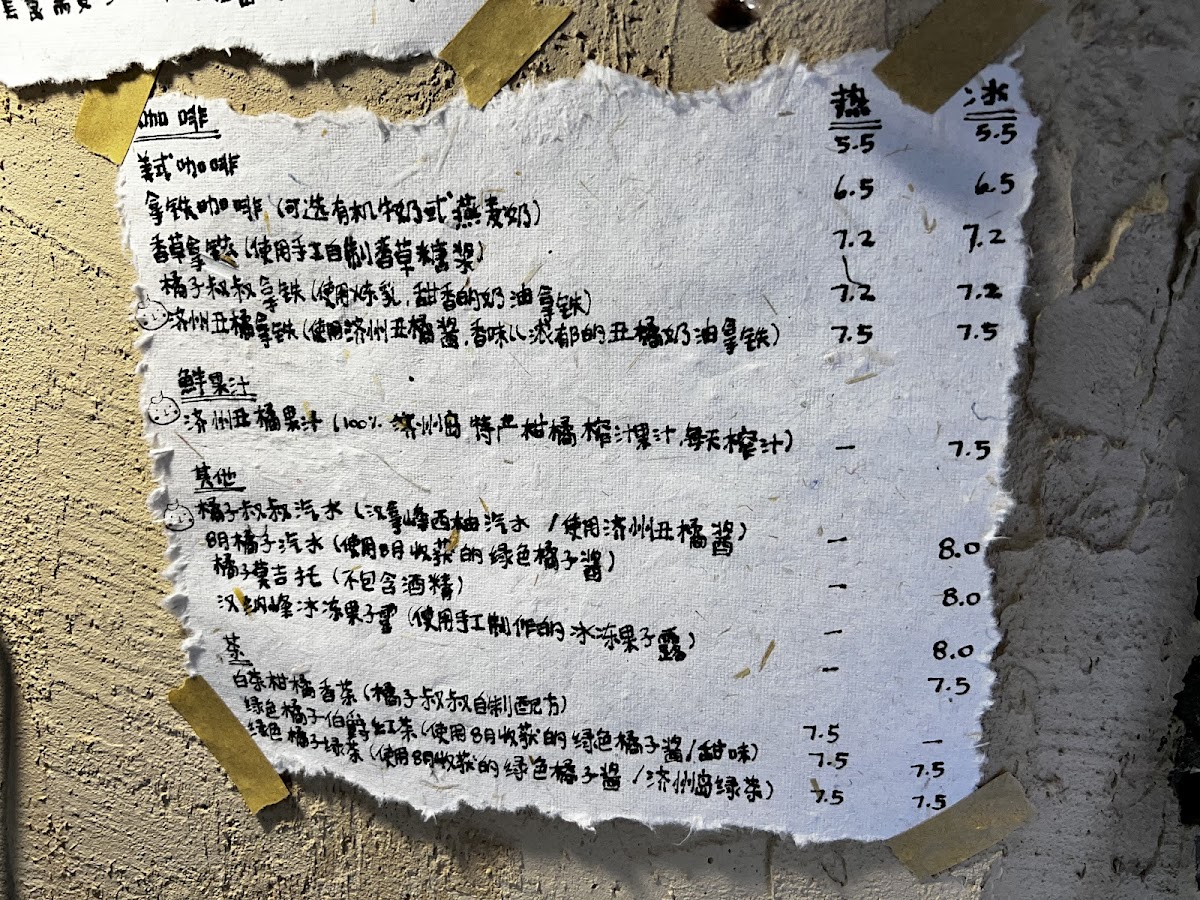 咖啡 热 冰
美式咖啡 5.5 5.5
拿铁咖啡(可选有机牛奶或燕麦奶) 6.5 6.5
香草拿铁(使用手工自制香草糖浆) 7.2 7.2
橘子叔叔拿铁(使用炼乳,甜香的奶油拿铁) 7.2 7.2
济州丑橘拿铁(使用济州丑橘酱,香味儿浓郁的丑橘奶油拿铁) 7.5 7.5
鲜果汁
济州丑橘果汁(100% 济州岛特产柑橘榨汁果汁,每天榨汁) – 7.5
其他
橘子叔叔汽水(汉拿峰西柚汽水/使用济州丑橘酱) – 8.0
8月橘子汽水(使用8月收获的绿色橘子酱) – 8.0
橘子莫吉托(不包含酒精) – 8.0
汉纳峰冰冻果子露(使用手工制作的冰冻果子露) – 7.5
茶
白茶柑橘香茶(橘子叔叔自制配方) 7.5 –
绿色橘子伯爵红茶(使用8月收获的绿色橘子酱/甜味) 7.5 7.5
绿色橘子绿茶(使用8月收获的绿色橘子酱/济州岛绿茶) 7.5 7.5